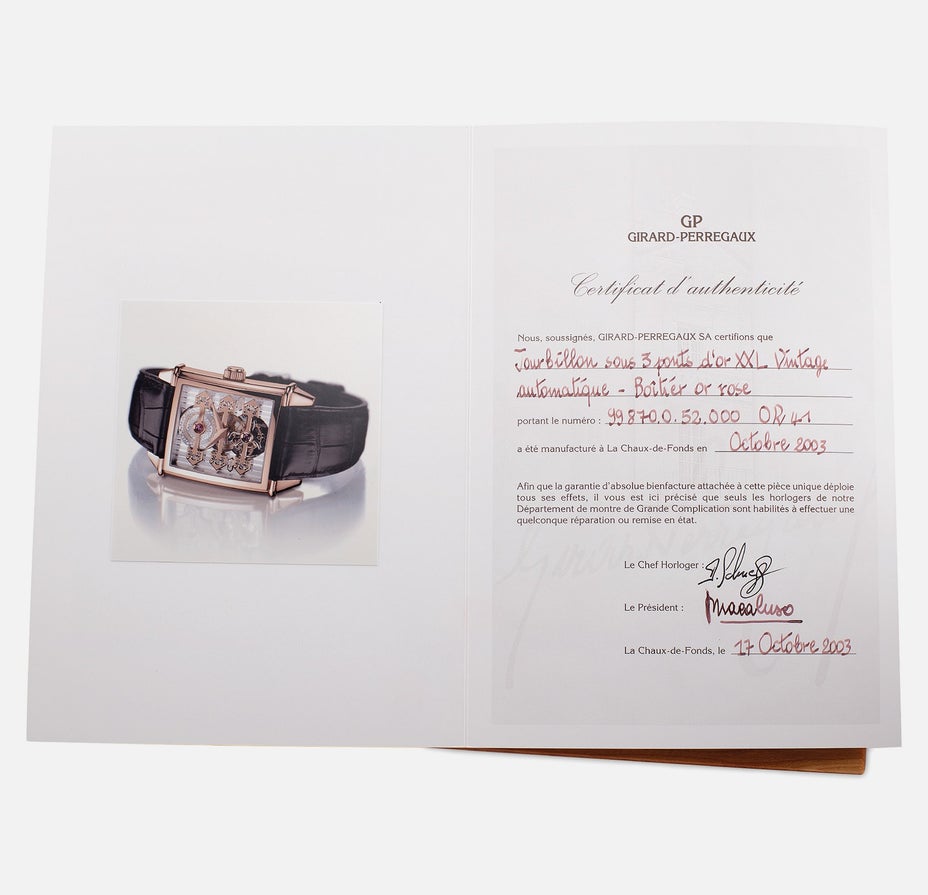 GP
GIRARD-PERREGAUX
Certificat d'authenticité
Nous, soussignés, GIRARD-PERREGAUX SA certifions que
Tourbillon sous 3 ponts d'or XXL Vintage
automatique - Boîtier or rose
portant le numéro : 99870.0.52.000 OR 41
a été manufacturé à La Chaux-de-Fonds en Octobre 2003
Afin que la garantie d'absolue bienfacture attachée à cette pièce unique déploie
tous ses effets, il vous est ici précisé que seuls les horlogers de notre
Département de montre de Grande Complication sont habilités à effectuer une
quelconque réparation ou remise en état.
Le Chef Horloger :
Le Président : Macaluso
La Chaux-de-Fonds, le 17 Octobre 2003